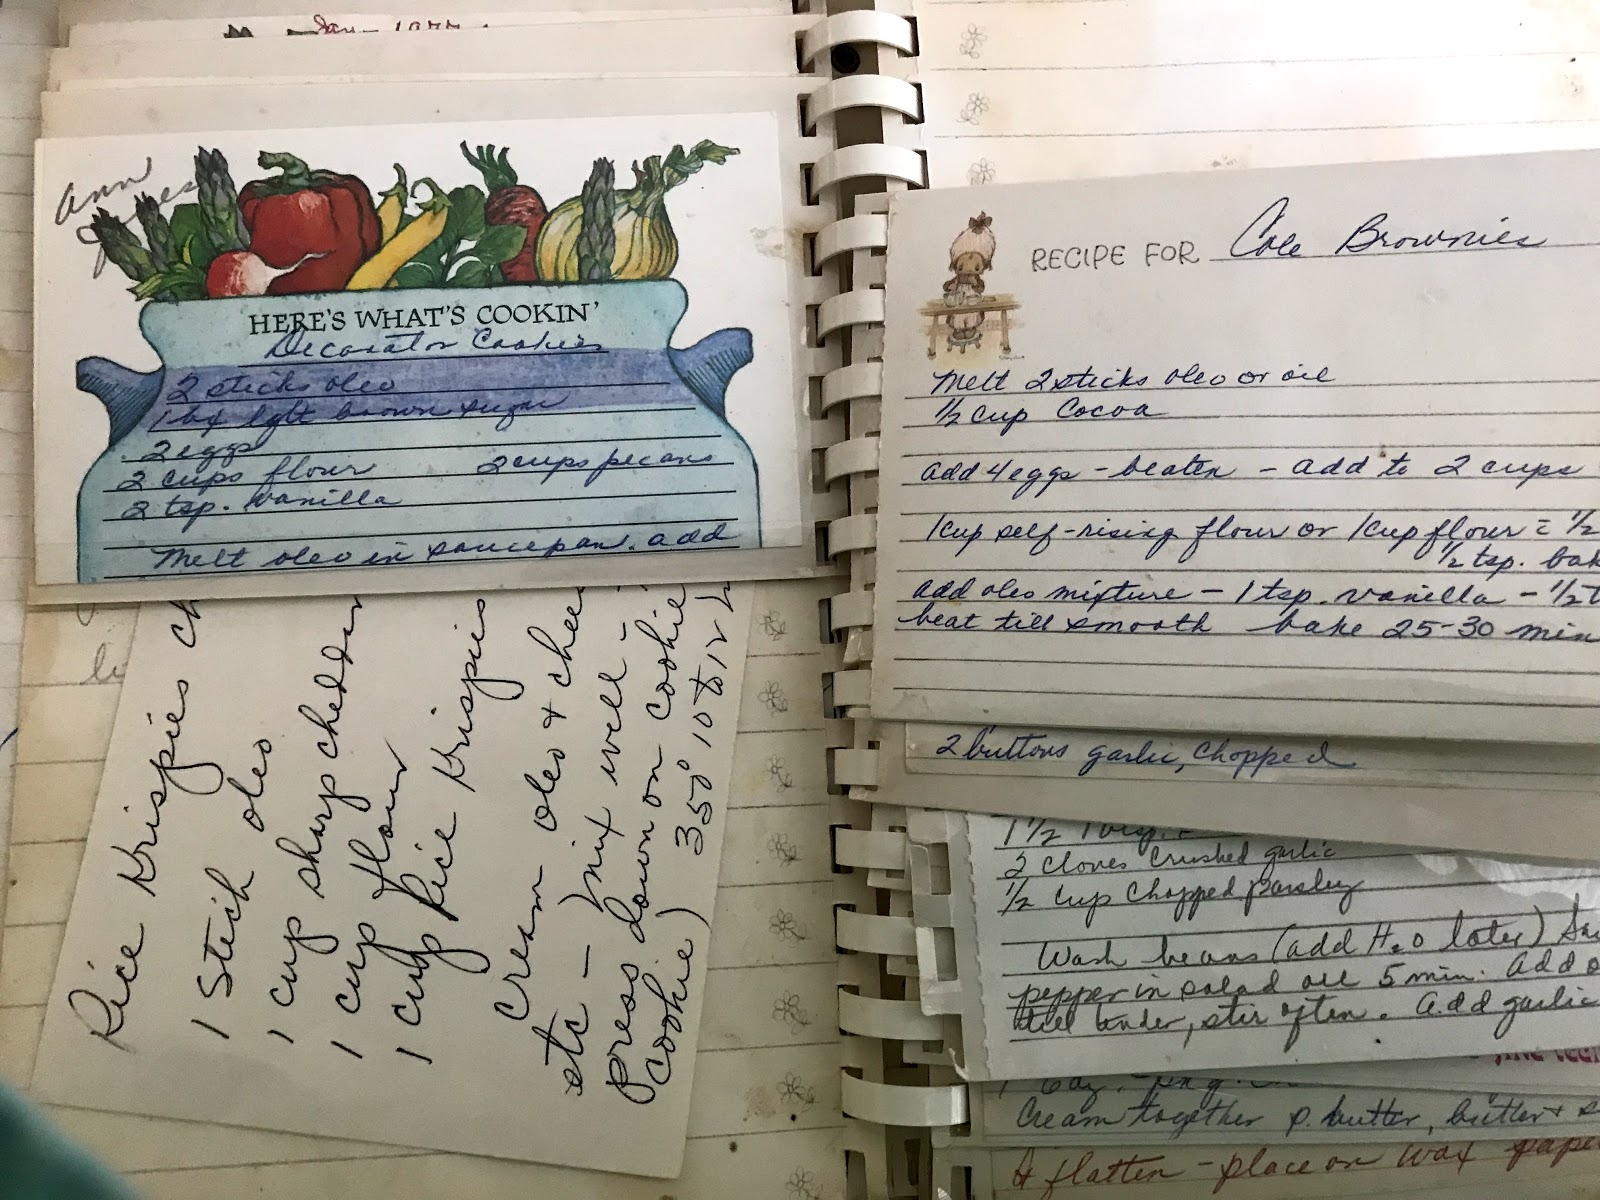 Jan - 1977
Ann
Jones
HERE'S WHAT'S COOKIN'
Decorator Cookies
2 sticks oleo
1 bx lght brown sugar
2 eggs
2 cups flour 2 cups pecans
2 tsp. vanilla
Melt oleo in saucepan. add
Rice Krispies ch
1 stick oleo
1 cup sharp cheddar
1 cup flour
1 cup Rice Krispis
Cream oleo + chee
etc - mix well -
press down on cookie
cookie) 350° 10 to 12
RECIPE FOR Cole Brownies
Melt 2 sticks oleo or oil
1/2 cup Cocoa
add 4 eggs - beaten - add to 2 cups
1 cup self-rising flour or 1 cup flour = 1/2
1/2 tsp. bak
add oleo mixture - 1 tsp. vanilla - 1/2 t
beat till smooth bake 25-30 min
2 buttons garlic, chopped
1 1/2
2 cloves crushed garlic
1/2 cup chopped parsley
Wash beans (add H2O later)
pepper in salad oil 5 min. Add
till tender, stir often. Add garlic
Cream together p. butter, butter +
& flatten - place on wax pape